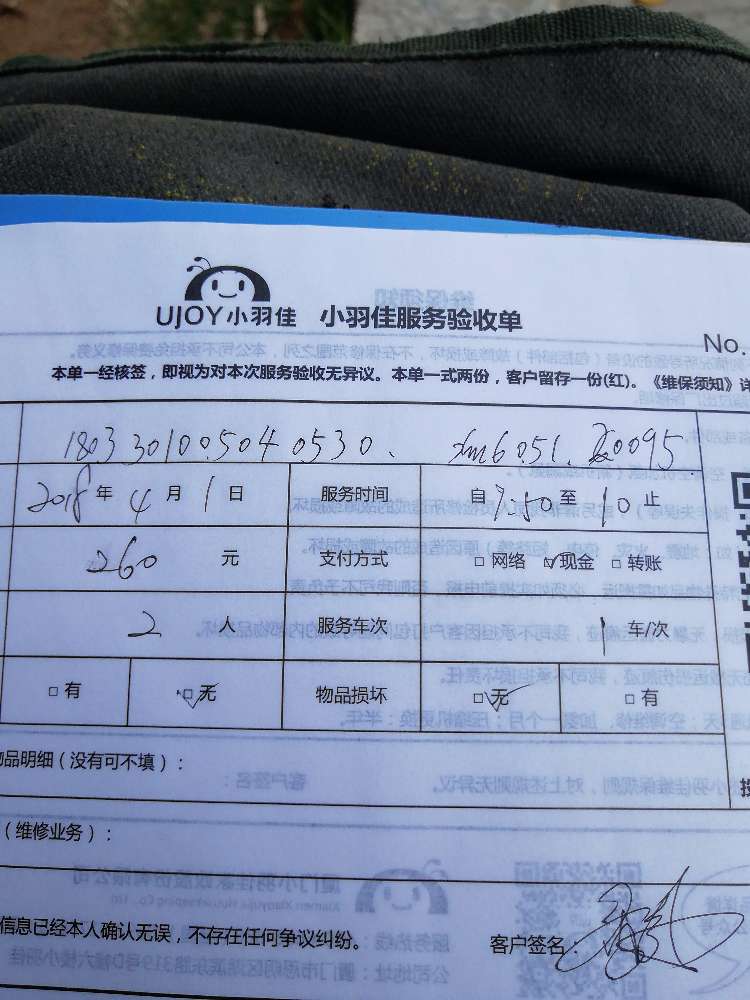 UJOY小羽佳 小羽佳服务验收单
No.
本单一经核签，即视为对本次服务验收无异议。本单一式两份，客户留存一份(红)。《维保须知》详
180330100504 0530. xm6051.
2018年4月1日 服务时间 自7:50至10止
260元 支付方式 □网络 ☑现金 □转账
2人 服务车次 1车/次
□有 ☑无 物品损坏 ☑无 □有
品明细（没有可不填）：
（维修业务）：
信息已经本人确认无误，不存在任何争议纠纷。 客户签名：